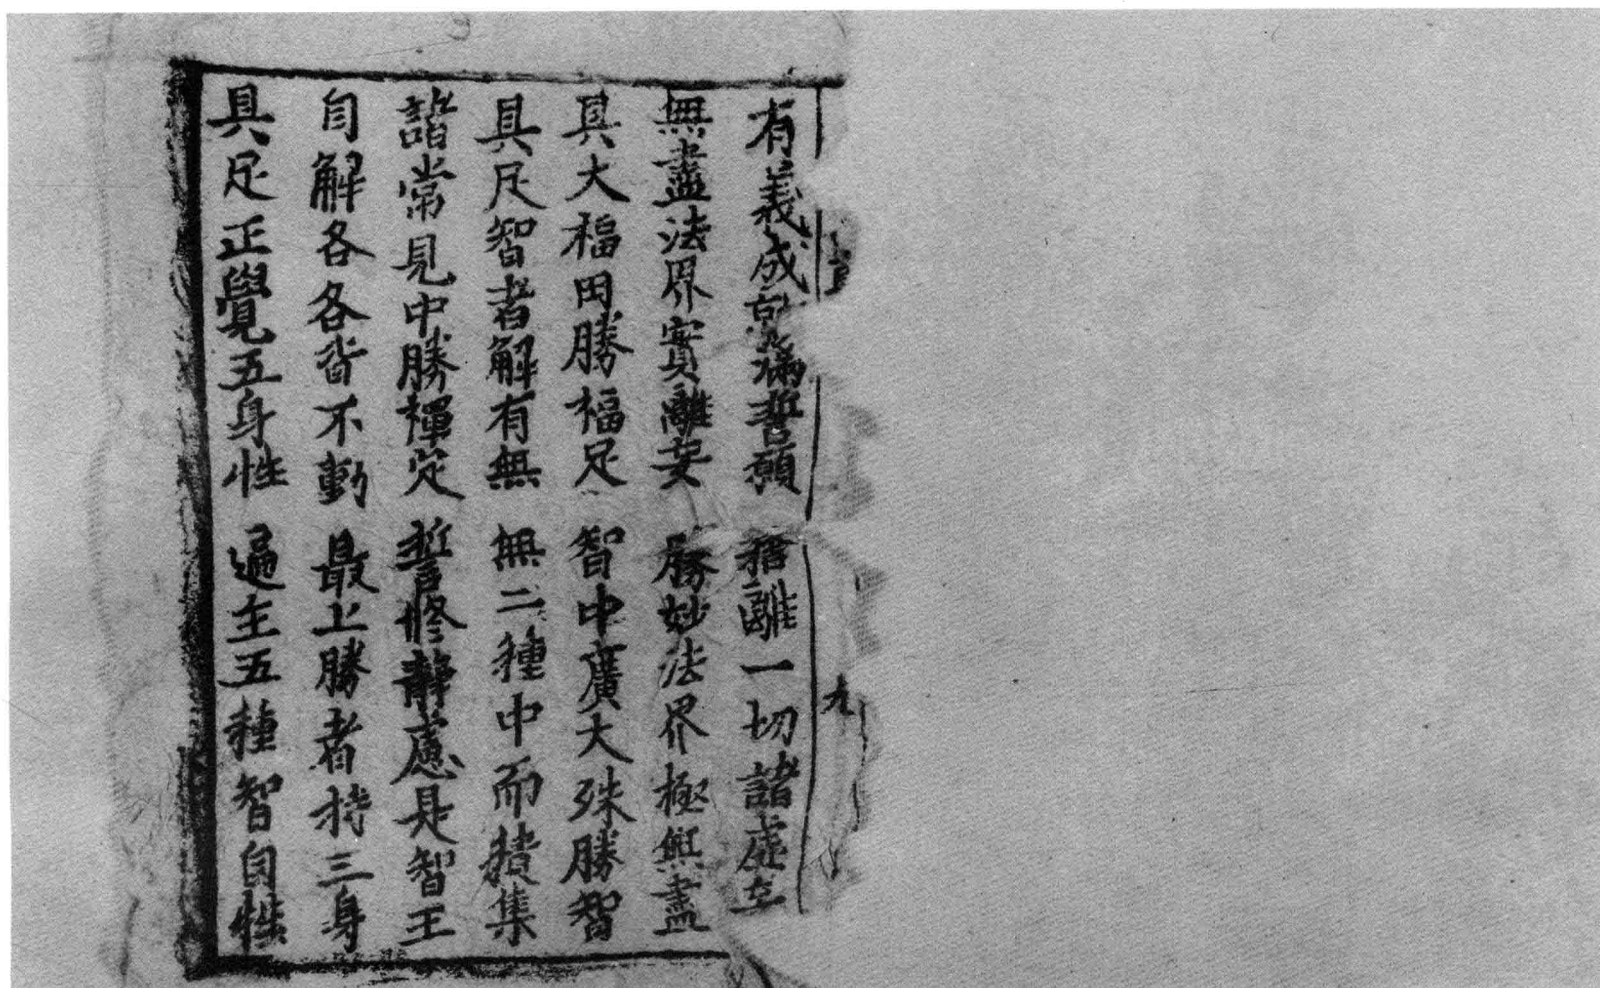 有義成就滿誓願　捨離一切諸虛妄
無盡法界實離妄　勝妙法界極無盡
具大福田勝福足　智中廣大殊勝智
具足智者解有無　無二種中而積集
諸常見中勝禪定　誓修靜慮是智王
自解各各皆不動　最上勝者持三身
具足正覺五身性　遍主五種智自性
九